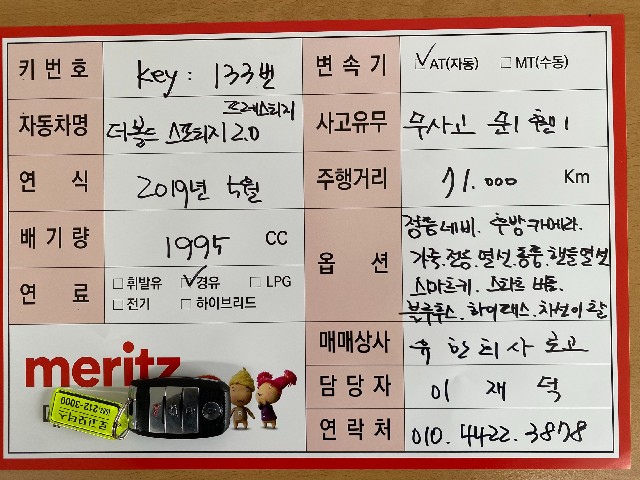 키 번 호
key : 133번
변 속 기
✓AT(자동) □MT(수동)
자동차명
프레스티지
더볼드 스포티지 2.0
사고유무
무사고
연 식
2019년 5월
주행거리
71.000 Km
배 기 량
1995 CC
옵 션
정품네비. 후방카메라.
가죽.전동.열선.통풍.핸들열선
스마트키. 스타트 버튼.
블루투스. 하이패스. 차선이탈
연 료
□휘발유 ✓경유 □LPG
□전기 □하이브리드
매매상사
유한회사 로고
담 당 자
이 재 덕
연 락 처
010. 4422. 3878
meritz
212-3000